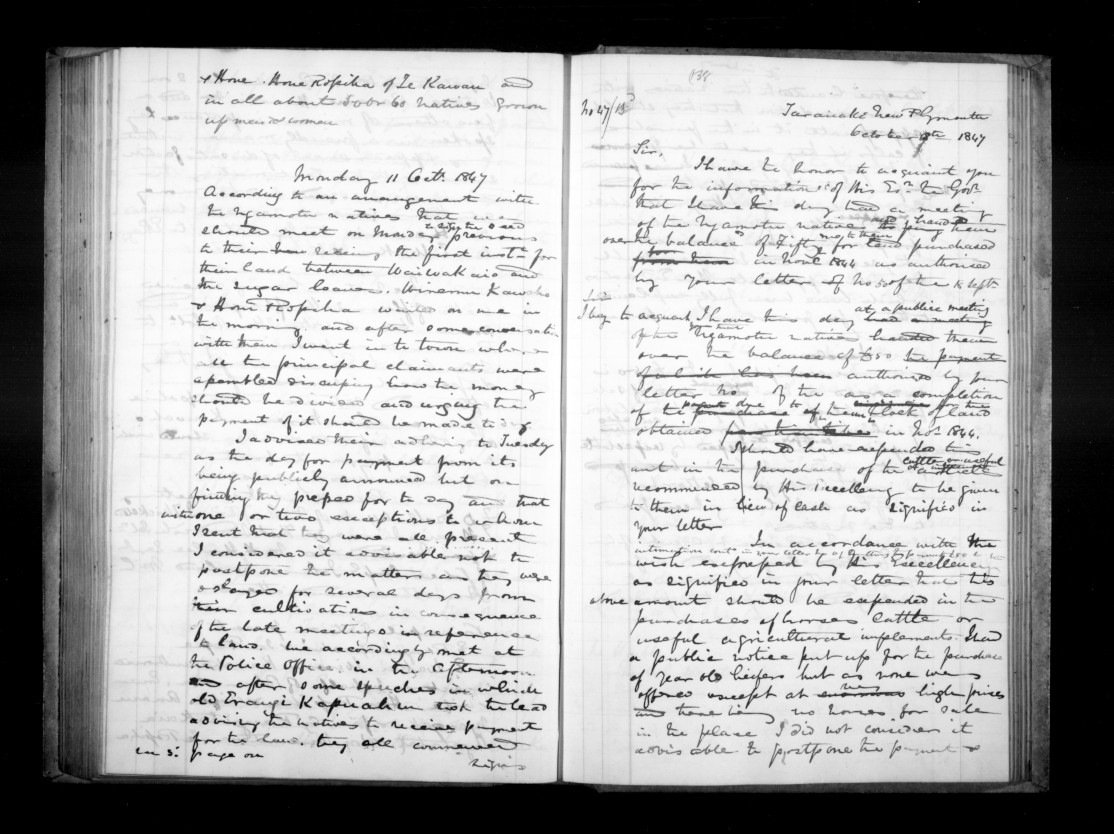 & Hone. Hone Ropiha of Te Kawau and
in all about 50 or 60 natives grown
up men & women
Monday 11 Octr. 1847
According to an arrangement with
the Ngamotu natives that we
should meet on Monday previous
to their the first inst. for
their land between Waiwakaio and
the Sugar loaves. Wiremu Kawaho
& Hone Ropiha waited on me in
the morning and after some conversation
with them I went in to town where
all the principal claimants were
assembled discussing how the money
should be divided and urging the
payment of it should be made to day
I advised their adhering to Tuesday
as the day for payment from its
being publicly announced but on
finding the pressed for to day and that
with one or two exceptions to whom
I sent that they were all present
I considered it advisable not to
postpone the matter as they were
for several days from
their cultivations in consequence
of the late meetings in reference
to land. We accordingly met at
the Police Office in the afternoon
and after some speeches in which
old Eraugi Kapuahu took the lead
advising the natives to receive payment
for the land. they all commenced
page on
138
No 47/13
Taranaki New Plymouth
October 12th 1847
Sir,
I have the honor to acquaint you
for the information of His Exy. the Govr.
that I have this day had a meeting
of the Ngamotu natives & paying them
over the balance of Fifty for land purchased
from them in Novr. 1844 as authorised
by your letter of No 50 of the 15 Septr.
I beg to acquaint I have this day had a meeting
at a public meeting
of the Ngamotu natives handed them
over the balance of £50 the payment
of which has been authorised by your
letter No. of the as a completion
of the purchase of them block of land
obtained in Novr. 1844.
I should have expended this
amt in the purchase of the cattle or useful
recommended by His Excellency to be given
to them in lieu of cash as signified in
your letter
In accordance with the
wish expressed by His Excellency
as signified in your letter that the
above amount should be expended in the
purchases of horses cattle or
useful agricultural implements. I had
a public notice put up for the purchase
of year old heifers but as none were
offered except at high prices
and there being no horses for sale
in the place I did not consider it
advisable to postpone the payment &